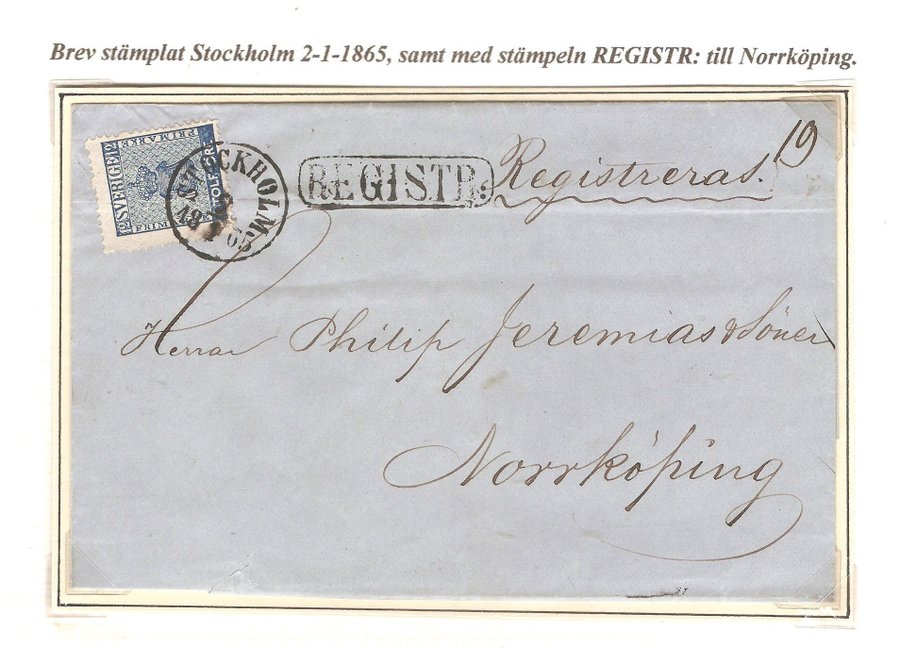 Brev stämplat Stockholm 2-1-1865, samt med stämpeln REGISTR: till Norrköping.
19
SVERIGE 12 FRIMÄRKE TOLF ÖRE FRIM
STOCKHOLM
18 65
REGISTR:
Registreras.
Herrar Philip Jeremias & Söner
Norrköping